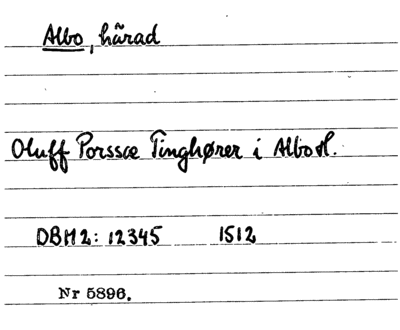 Albo, härad
Oluff Porssæ Tinghører i Albo H.
DBH 2: 12345 1512
Nr 5896.